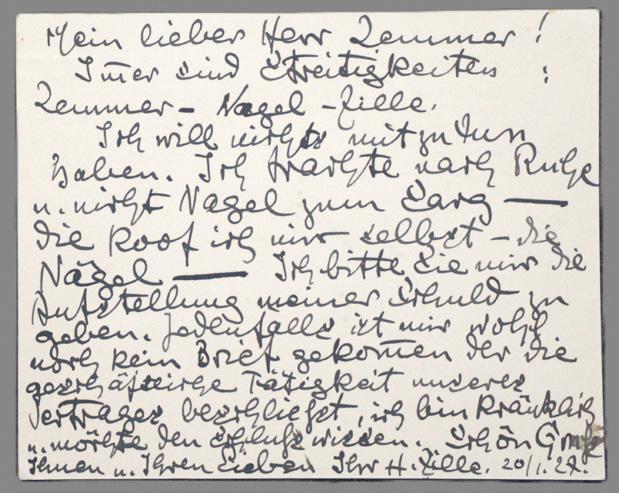 Mein lieber Herr Zemmer!
Im̅er sind Streitigkeiten :
Zemmer - Nagel - Zille.
Ich will nichts mitzutun
haben. Ich trachte nach Ruhe
u. nicht Nagel zum Sarg —
die koof ich mir selbst - die
Nägel — Ich bitte Sie mir die
Aufstellung meiner Schuld zu
geben. Jedenfalls ist mir wohl
noch kein Brief gekom̅en der die
Tätigkeit unseres
Vertrages beschließt, ich bin kränklich
u. möchte den Schluß wissen. Schön Gruß
Ihnen u. Ihren Lieben Ihr H. Zille. 20/1. 27.